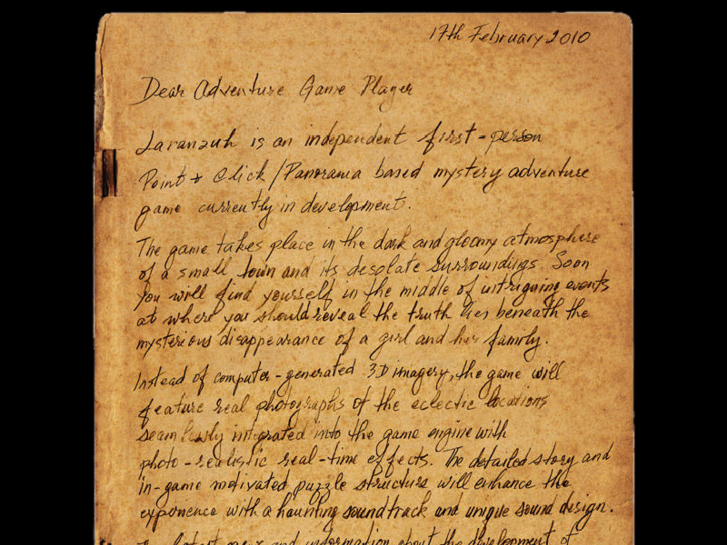 17th February 2010
Dear Adventure Game Player
is an independent first-person
Point & Click/Panorama based mystery adventure
game currently in development.
The game takes place in the dark and gloomy atmosphere
of a small town and its desolate surroundings. Soon
you will find yourself in the middle of intriguing events
at where you should reveal the truth lies beneath the
mysterious disappearance of a girl and her family.
Instead of computer-generated 3D imagery, the game will
feature real photographs of the eclectic locations
seamlessly integrated into the game engine with
photo-realistic real-time effects. The detailed story and
in-game motivated puzzle structure will enhance the
experience with a haunting soundtrack and unique sound design.
latest news and information about the development of